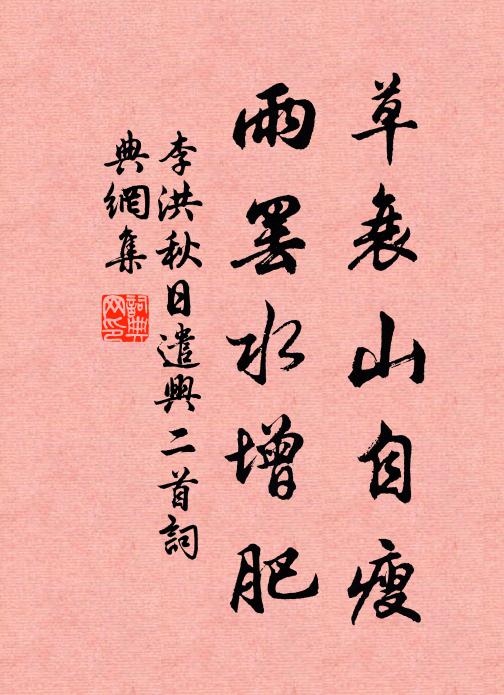 草衰山自瘦
雨罢水增肥
李洪秋日遣興二首詞
典網集
詞典网印